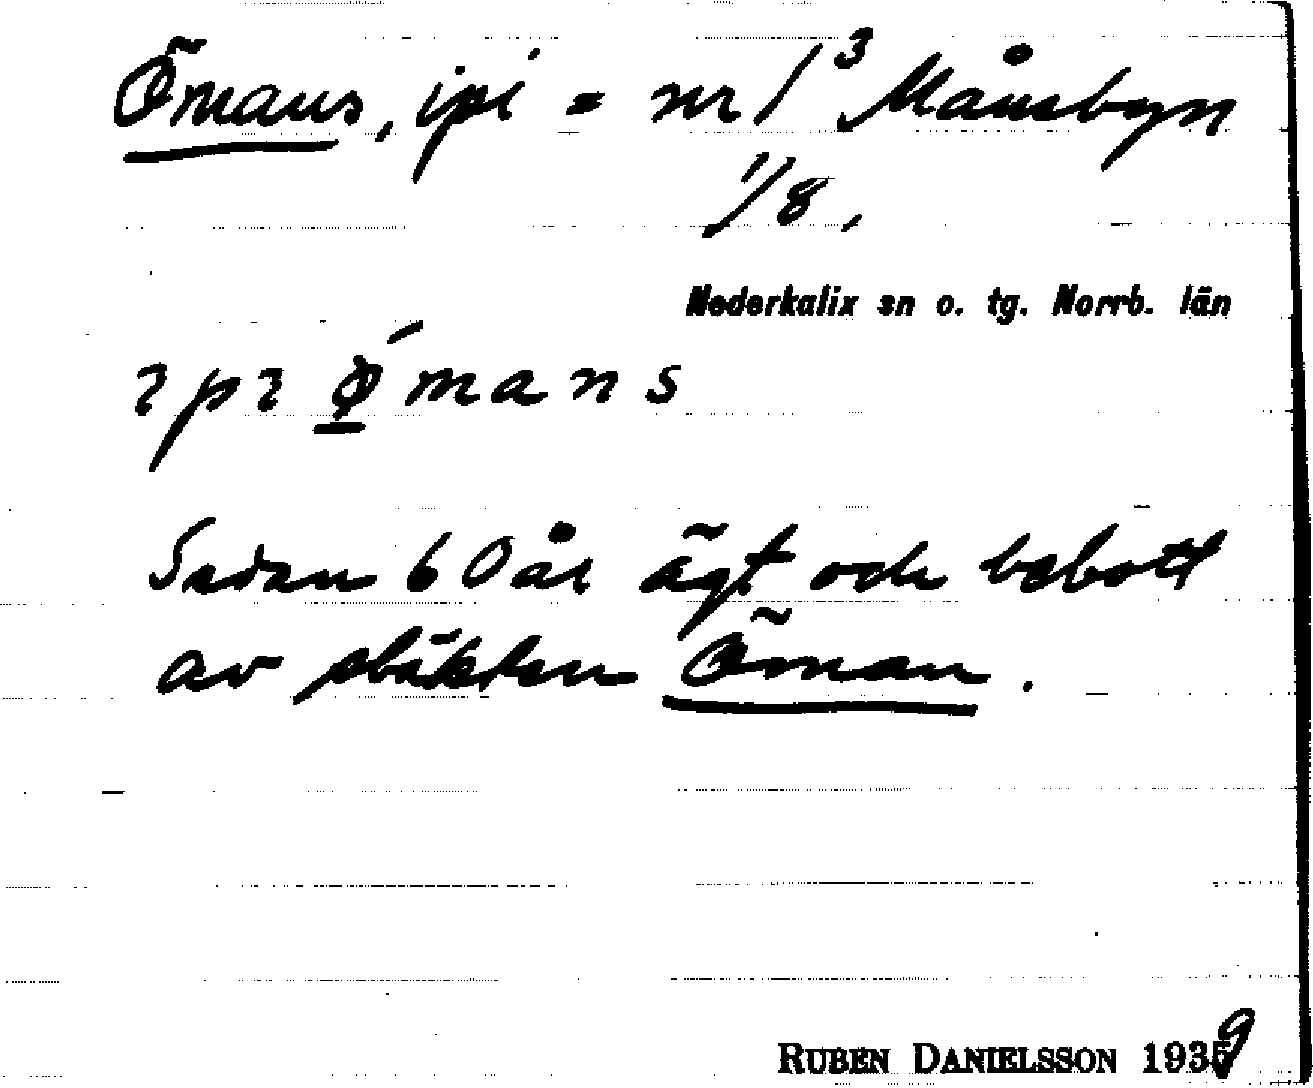 Ömans, ipi = nr 1³ Månsbyn
1/8.
Nederkalix sn o. tg. Norrb. län
ɿpɿ ǿmans
Sedan 60 år ägt och bebott
av släkten Öman.
RUBEN DANIELSSON 1939